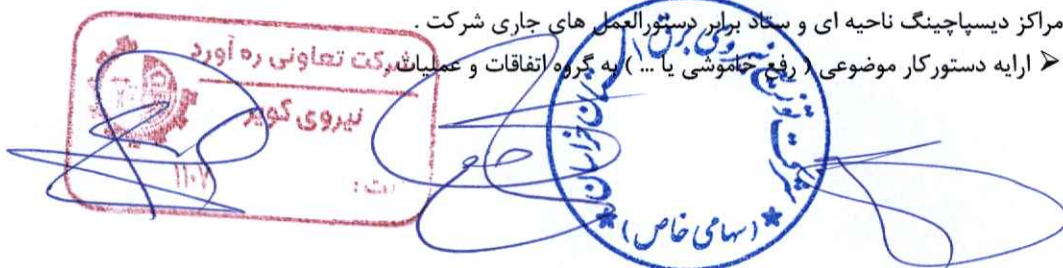 مراکز دیسپاچینگ ناحیه ای و ستاد برابر دستورالعمل های جاری شرکت .
➢ ارایه دستورکار موضوعی ( رفع خاموشی یا ... ) به گروه اتفاقات و عملیات
شرکت تعاونی ره آورد
نیروی کویر
۱۱۰۷
ت :
شرکت توزیع نیروی برق استان خراسان
(سهامی خاص)